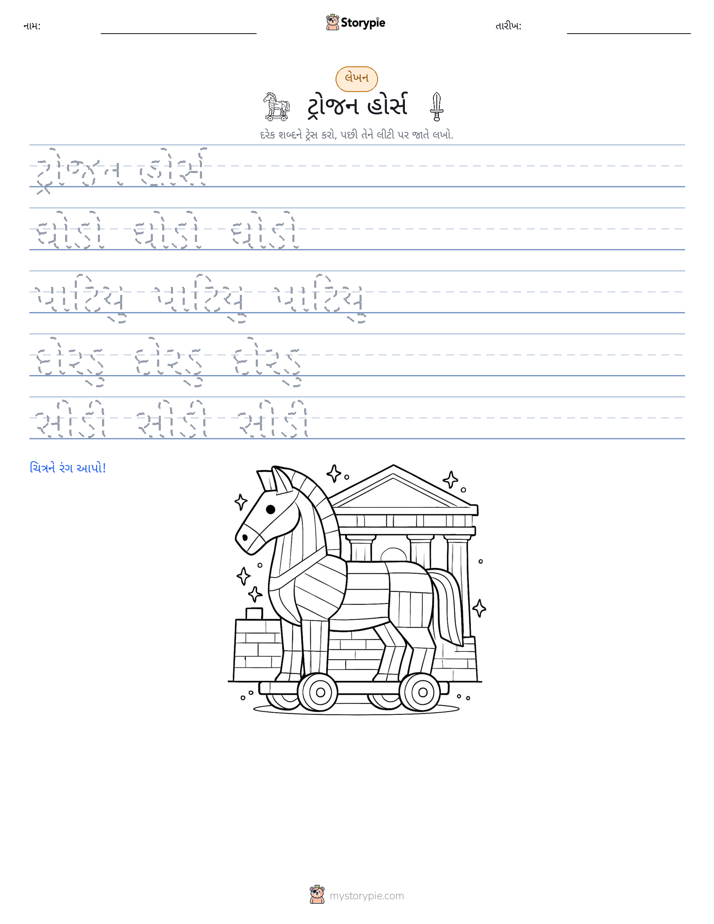 નામ:
Storypie
તારીખ:
લેખન
ટ્રોજન હોર્સ
દરેક શબ્દને ટ્રેસ કરો, પછી તેને લીટી પર જાતે લખો.
ટ્રોજન હોર્સ
ઘોડો ઘોડો ઘોડો
પાટિયુ પાટિયુ પાટિયુ
દોરડુ દોરડુ દોરડુ
સીડી સીડી સીડી
ચિત્રને રંગ આપો!
mystorypie.com